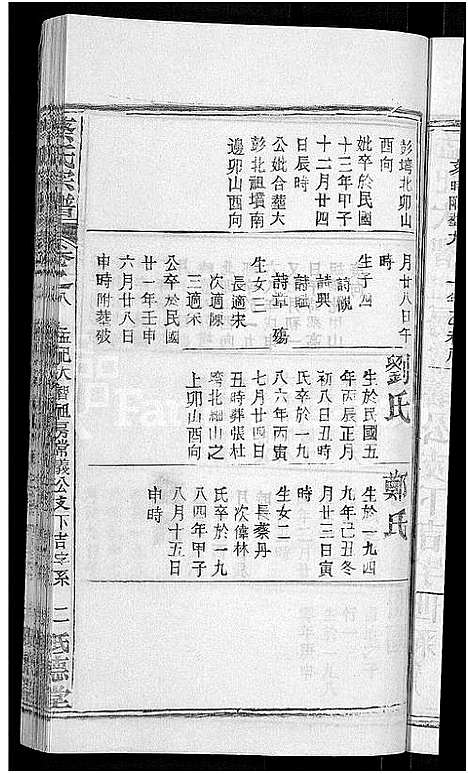 彭塆北卯山
酉向
妣卒於民國
十三年甲子
十二月廿四
日辰時
公妣合塟大
彭北祖墳南
邊卯山酉向
月廿八日午
時
生子四
詩觀
詩興
詩賦
詩章 殤
生女三
長適宋
次適陳
三適宋
公卒於民國
廿一年壬申
六月廿八日
申時附塟破
劉氏
生於民國五
年丙辰正月
初八日丑時
氏卒於一九
八六年丙寅
七月廿四日
丑時葬張杜
塆北細山之
上卯山酉向
鄭氏
生於一九四
九年己丑冬
月廿三日寅
時
生女二
長蔡丹
次偉林
氏卒於一九
八四年甲子
八月十五日
申時
蔡氏宗譜
卷之八
孟祀大智祖房常義公支下吉字系
二